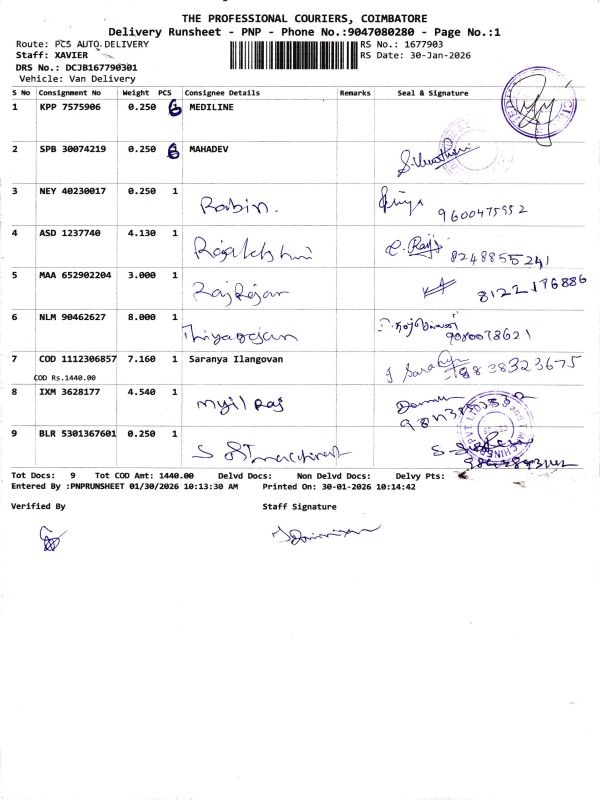 THE PROFESSIONAL COURIERS, COIMBATORE
Delivery Runsheet - PNP - Phone No.:9047080280 - Page No.:1
Route: PCS AUTO DELIVERY
RS No.: 1677903
Staff: XAVIER
RS Date: 30-Jan-2026
DRS No.: DCJB167790301
Vehicle: Van Delivery
S No Consignment No Weight PCS Consignee Details Remarks Seal & Signature
1 KPP 7575906 0.250 6 MEDILINE
2 SPB 30074219 0.250 MAHADEV
3 NEY 40230017 0.250 1 Robin. Priya 9600475952
4 ASD 1237740 4.130 1 8248855241
5 MAA 652902204 3.000 1 Raj Rajan 8122176886
6 NLM 90462627 8.000 1 Thiyagarajan 9080078621
7 COD 1112306857 7.160 1 Saranya Ilangovan 8838323675
COD Rs.1440.00
8 IXM 3628177 4.540 1 Myil Raj
9 BLR 5301367601 0.250 1
Tot Docs: 9 Tot COD Amt: 1440.00 Delvd Docs: Non Delvd Docs: Delvy Pts:
Entered By :PNPRUNSHEET 01/30/2026 10:13:30 AM Printed On: 30-01-2026 10:14:42
Verified By Staff Signature